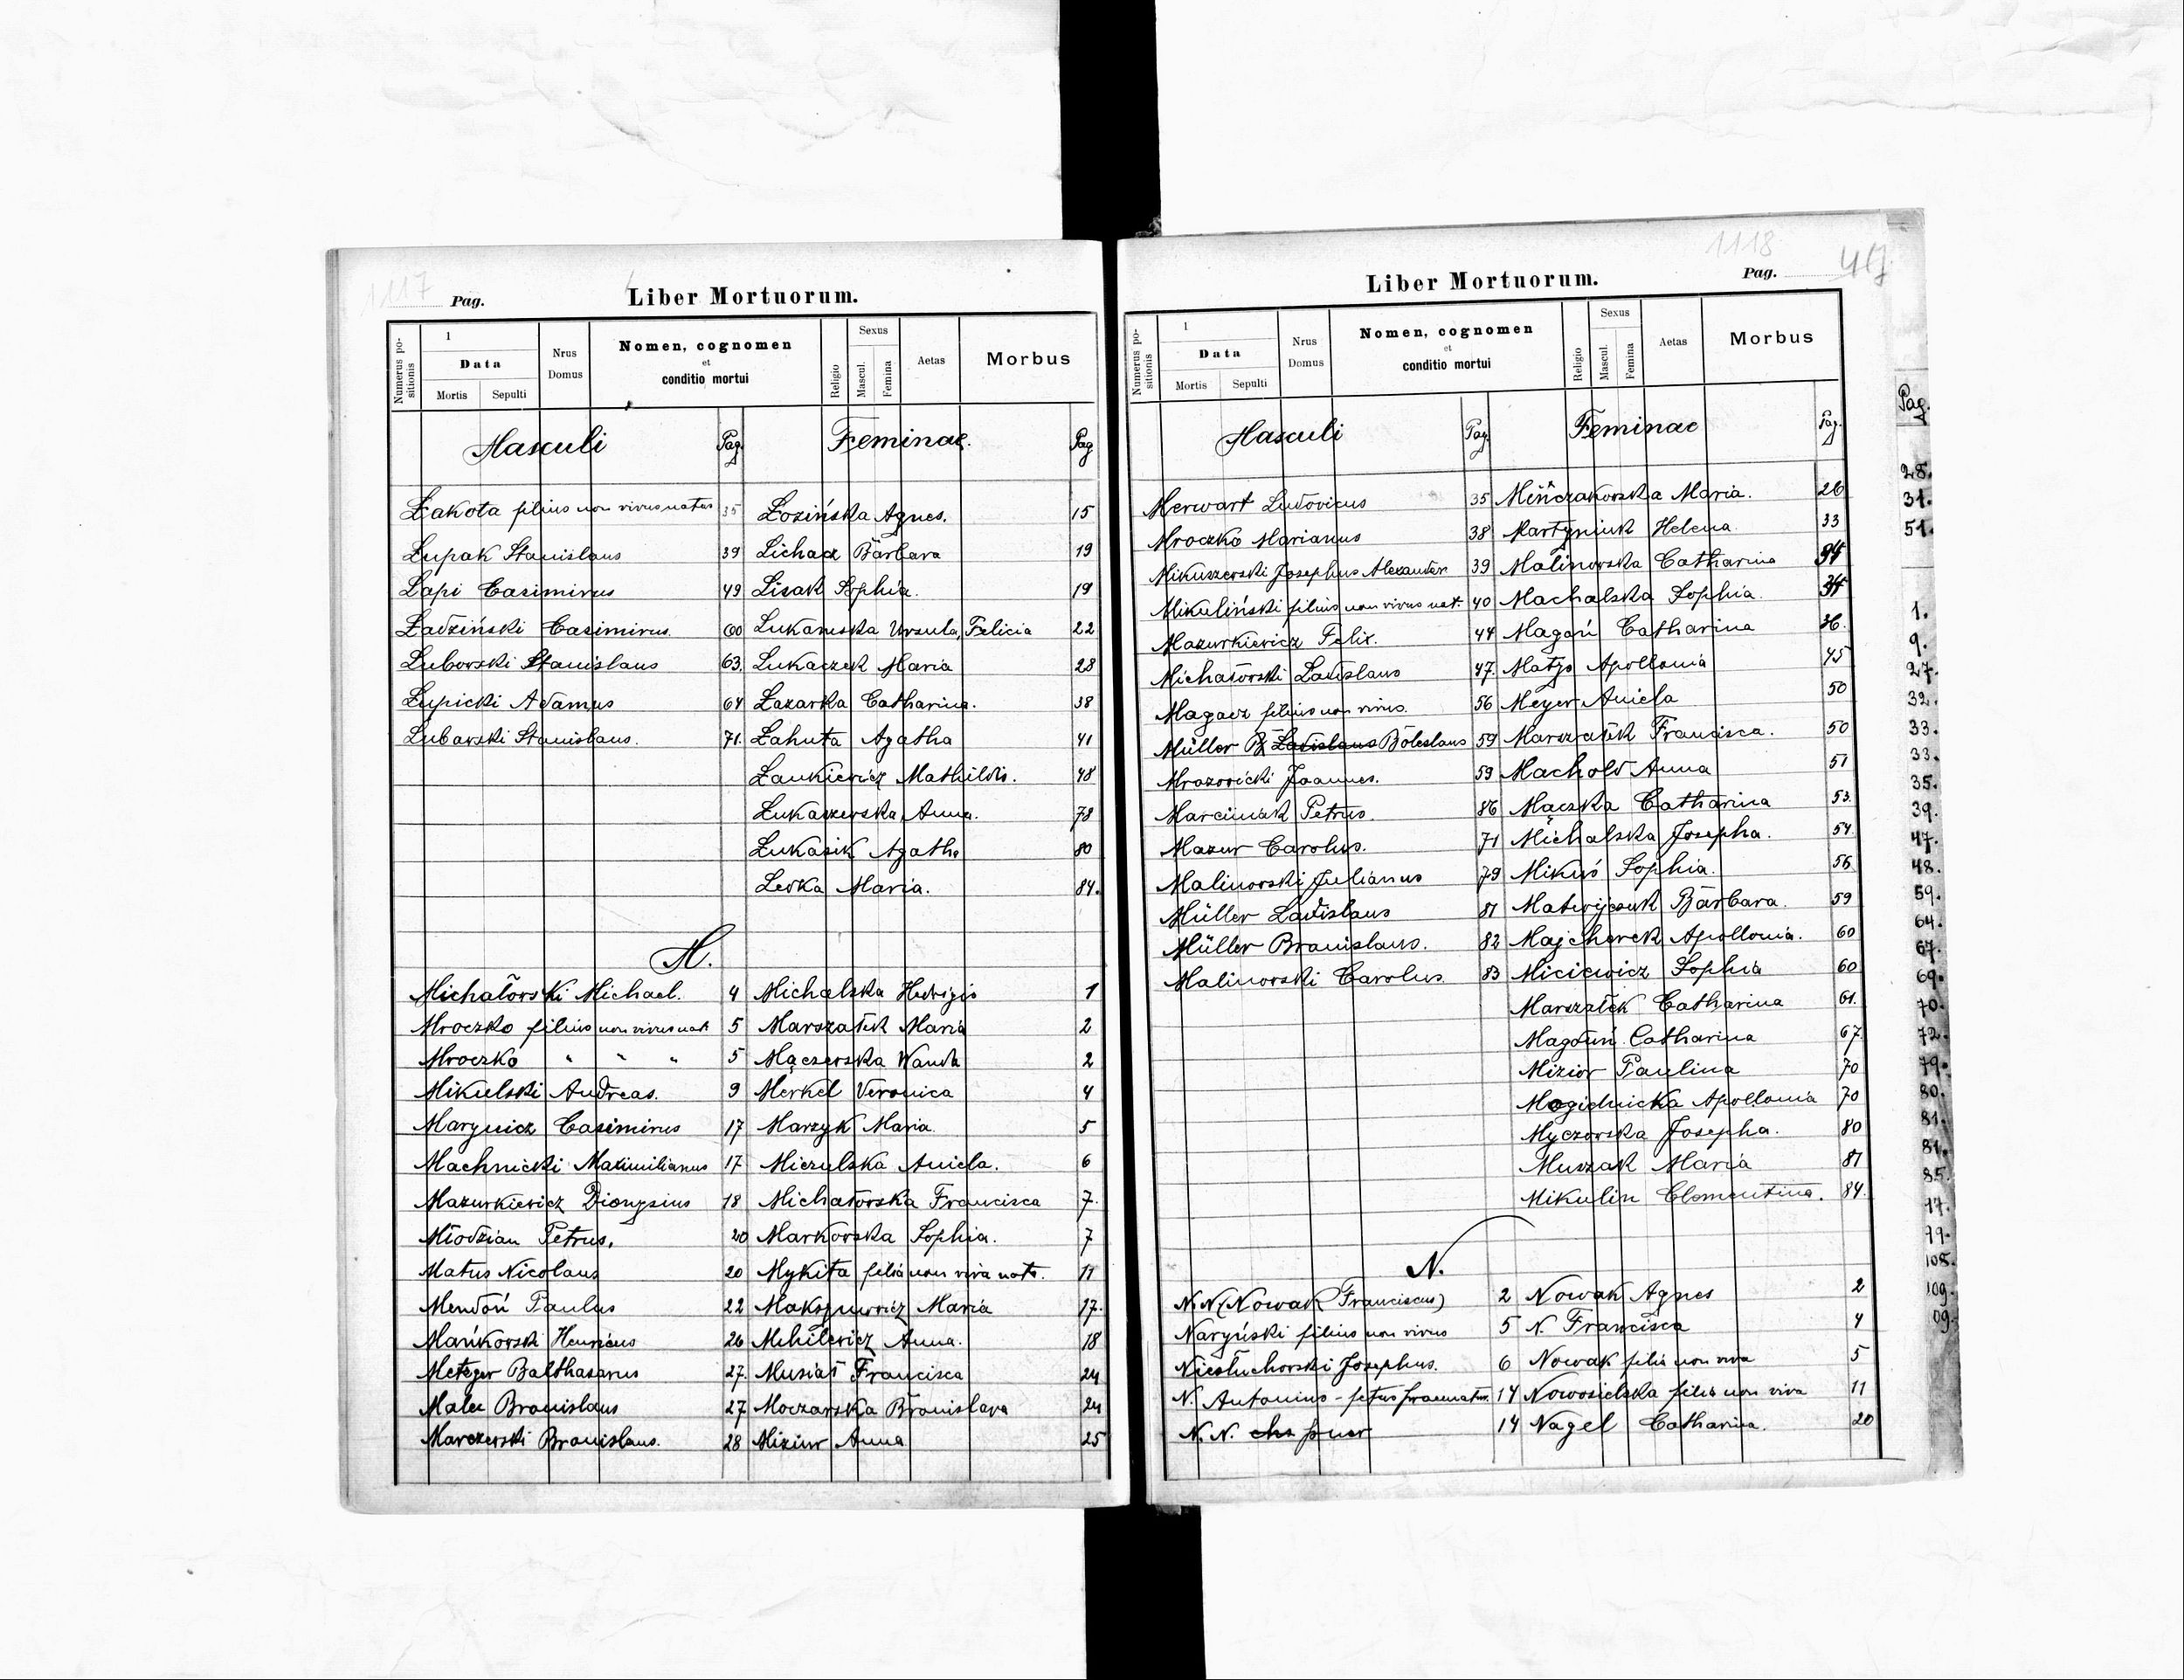 1117 Pag. Liber Mortuorum.
Numerus positionis
1
Data
Mortis Sepulti
Nrus Domus
Nomen, cognomen
et
conditio mortui
Religio
Sexus
Mascul. Femina
Aetas
Morbus
Masculi Pag. Feminae. Pag
Łakota filius non vivus natus 35 Łozińska Agnes. 15
Łupak Stanislaus 39 Lichacz Barbara 19
Lapi Casimirus 49 Lisak Sophia. 19
Ładziński Casimirus. 60 Ursula, Felicia 22
Luborski Stanislaus 63. Lukaczek Maria 28
Łupicki Adamus 64 Łazarka Catharina. 38
Lubarski Stanislaus. 71. Łahuta Agatha 41
Łankiewicz Mathildis. 48
Łukaszewska Anna. 78
Łukasik Agatha 80
Levka Maria. 84.
M.
Michałowski Michael. 4 Michalska Hedvigis 1
Mroczko filius non vivus nat 5 Marszałek Maria 2
Mroczko " " " 5 Mączewska Wanda 2
Mikulski Andreas. 9 Merkel Veronica 4
Marynicz Casimirus 17 Marzyk Maria. 5
Machnicki Maximilianus 17 Miczulska Aniela. 6
Mazurkiewicz Dionysius 18 Michałowska Francisca 7.
Młodzian Petrus. 20 Markowska Sophia. 7
Matus Nicolaus 20 Mykita filia non viva nata. 11
Mendoń Paulus 22 Maria 17.
Mańkowski Henricus 26 Mihilewicz Anna. 18
Metzger Balthasarus 27. Musiał Francisca 24
Malec Bronislaus 27 Moczarska Bronislava 24
Marczewski Bronislaus. 28 Miziur Anna 25
Liber Mortuorum. 1118 Pag. 417
Numerus positionis
1
Data
Mortis Sepulti
Nrus Domus
Nomen, cognomen
et
conditio mortui
Religio
Sexus
Mascul. Femina
Aetas
Morbus
Masculi Pag. Feminae Pag.
Merwart Ludovicus 35 Minczakowska Maria. 26
Mroczko Marianus 38 Martyniuk Helena 33
Mikuszewski Josephus Alexander 39 Malinowska Catharina 34
Mikuliński filius non vivus nat. 40 Machalska Sophia. 34
Mazurkiewicz Felix. 44 Magoń Catharina 36.
Michałowski Ladislaus 47. Matys Apollonia 45
Magacz filius non vivus. 56 Meyer Aniela 50
Müller B Ladislaus Boleslaus 59 Marszałek Francisca. 50
Mrozowicki Joannes. 59 Machold Anna 51
Marciniak Petrus. 86 Mączka Catharina 53.
Mazur Carolus. 71 Michalska Josepha. 54
Malinowski Julianus 79 Mikuś Sophia. 56
Müller Ladislaus 81 Matwijczuk Barbara. 59
Müller Bronislaus. 82 Majcherek Apollonia. 60
Malinowski Carolus. 83 Miciewicz Sophia 60
Marszałek Catharina 61.
Magdun Catharina 67.
Mizior Paulina 70
Mogielnicka Apollonia 70
Myczowska Josepha. 80
Muszak Maria 81
Mikulin Clementina. 84.
N.
N.N. (Nowak Franciscus) 2 Nowak Agnes 2
Naryński filius non vivus 5 N. Francisca 4
Niesłuchowski Josephus. 6 Nowak filia non viva 5
N. Antonius - fetus praematur. 14 Nowosielska filia non viva 11
N.N. puer 14 Nagel Catharina. 20
Pag.
28.
31.
51.
1.
9.
27.
32.
33.
33.
35.
39.
47.
48.
59.
64.
67.
69.
70.
72.
79.
80.
81.
81.
85.
97.
99.
108.
109.
09.